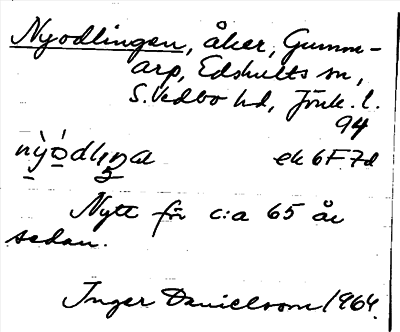 Nyodlingen, åker, Gumm-
arp, Edshults sn,
S. Vedbo hd, Jönk. l.
94
ek 6F7d
Nytt för c:a 65 år
sedan.
Inger Danielsson 1964.